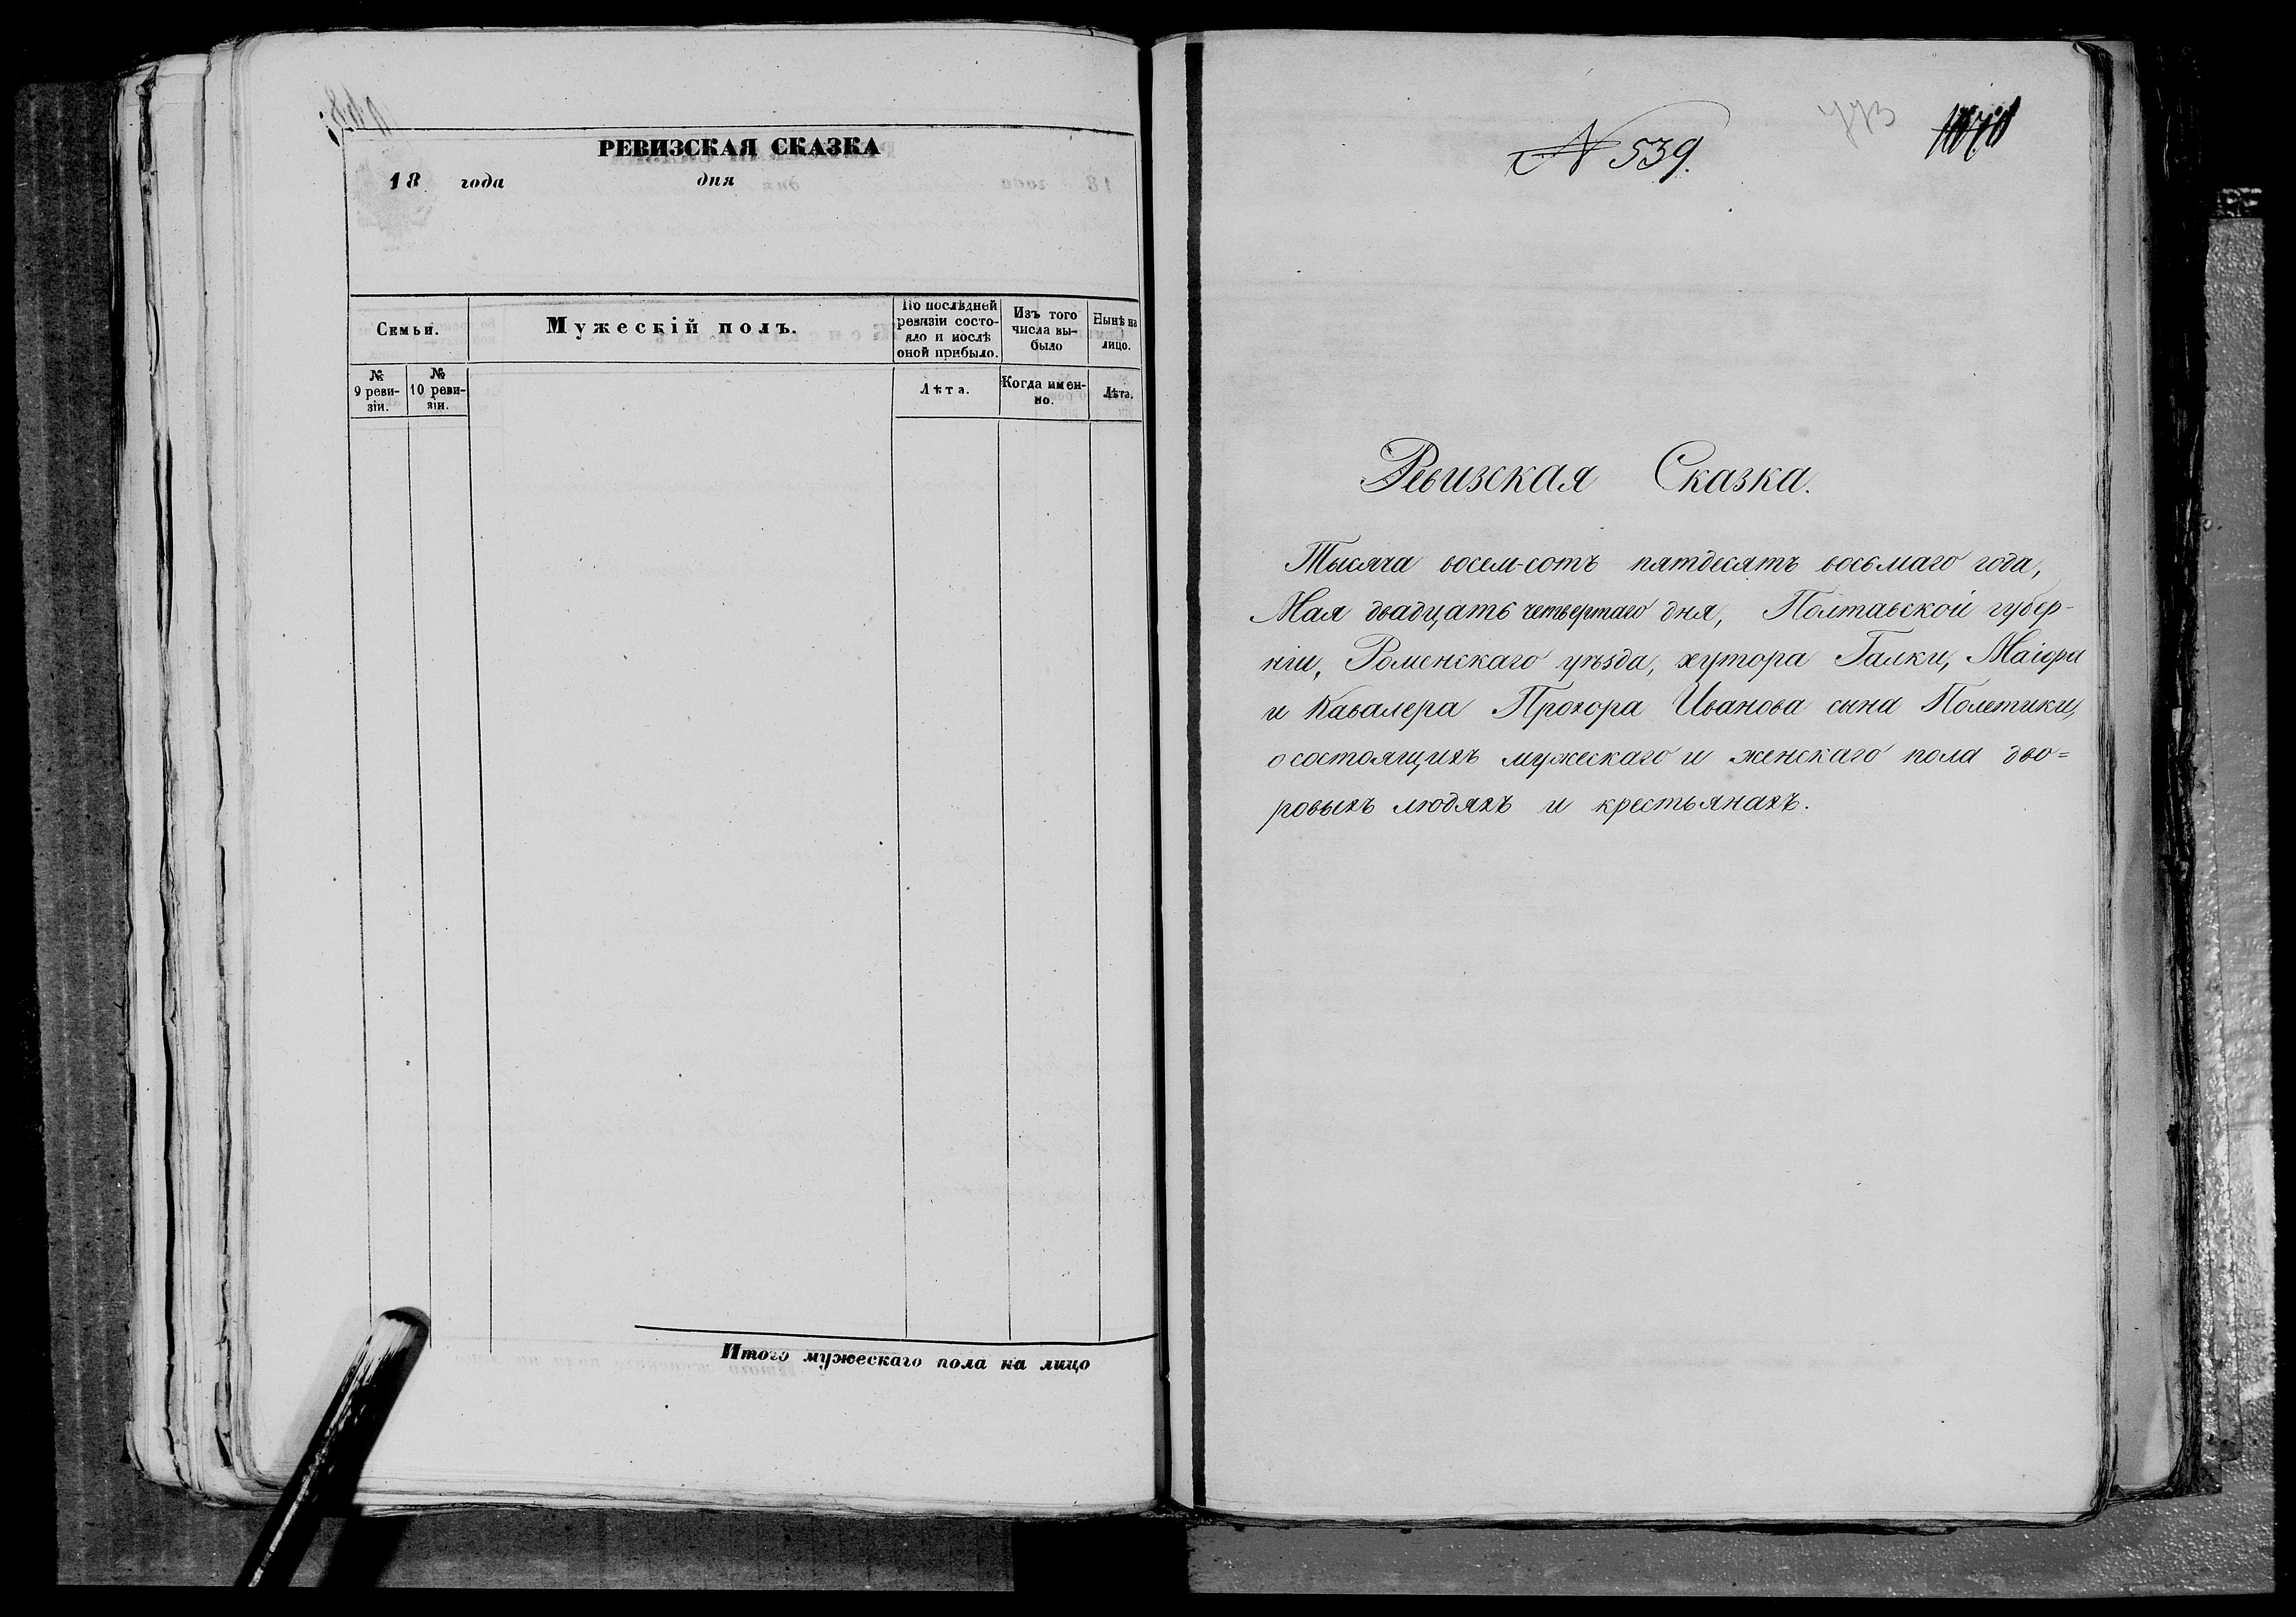 РЕВИЗСКАЯ СКАЗКА
18 года дня
Семьи.
Мужескій полъ.
По послѣдней ревизіи состо-
яло и послѣ
оной прибыло.
Изъ того
числа вы-
было
Нынѣ на
лицо.
№
9 реви-
зіи.
№
10 реви-
зіи.
Лѣта.
Когда имен-
но.
Лѣта.
Итого мужескаго пола на лицо
№ 539.
Ревизская Сказка.
Тысяча восем-сотъ пятдесятъ восьмаго года,
Мая двадцать четвертаго дня, Полтавской губер-
ніи, Роменскаго уѣзда, хутора Галки, Маіора
и Кавалера Прохора Иванова сына Полетики,
о состоящихъ мужескаго и женскаго пола дво=
ровыхъ людяхъ и крестьянахъ.